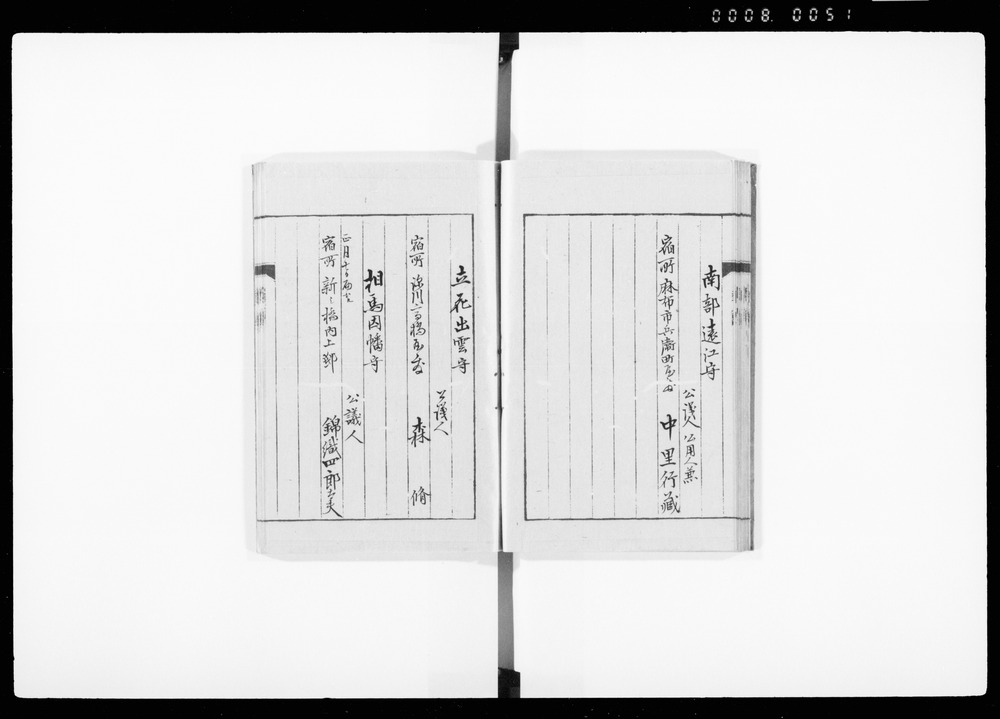 0008. 0051
南部遠江守
公議人 公用人兼
宿所 麻布市兵衛町
中里行蔵
立花出雲守
公議人
宿所 深川高橋
森 脩
相馬因幡守
公議人
正月十
宿所 新シ橋内上邸
錦織四郎太夫